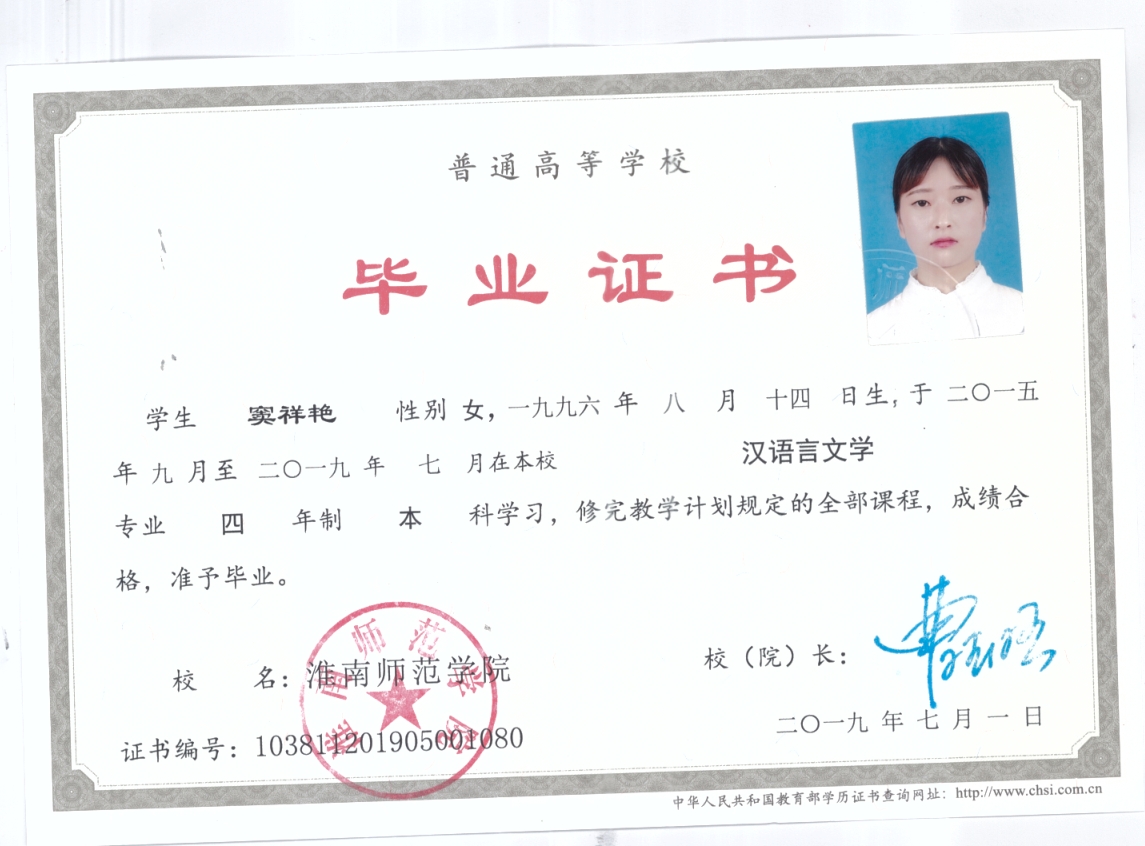 普通高等学校
毕业证书
学生 窦祥艳 性别 女，一九九六 年 八 月 十四 日生，于 二〇一五
年 九 月至 二〇一九 年 七 月在本校 汉语言文学
专业 四 年制 本 科学习，修完教学计划规定的全部课程，成绩合
格，准予毕业。
校 名：淮南师范学院 校（院）长：
淮南师范学院
证书编号：103811201905001080 二〇一九 年 七 月 一 日
中华人民共和国教育部学历证书查询网址：http://www.chsi.com.cn